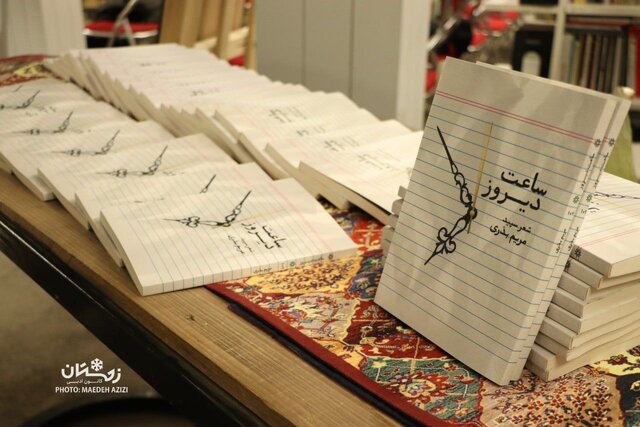 ساعت
دیروز
شعر سپید
مریم بذری
زمستان
کانون ادبی
PHOTO: MAEDEH AZIZI